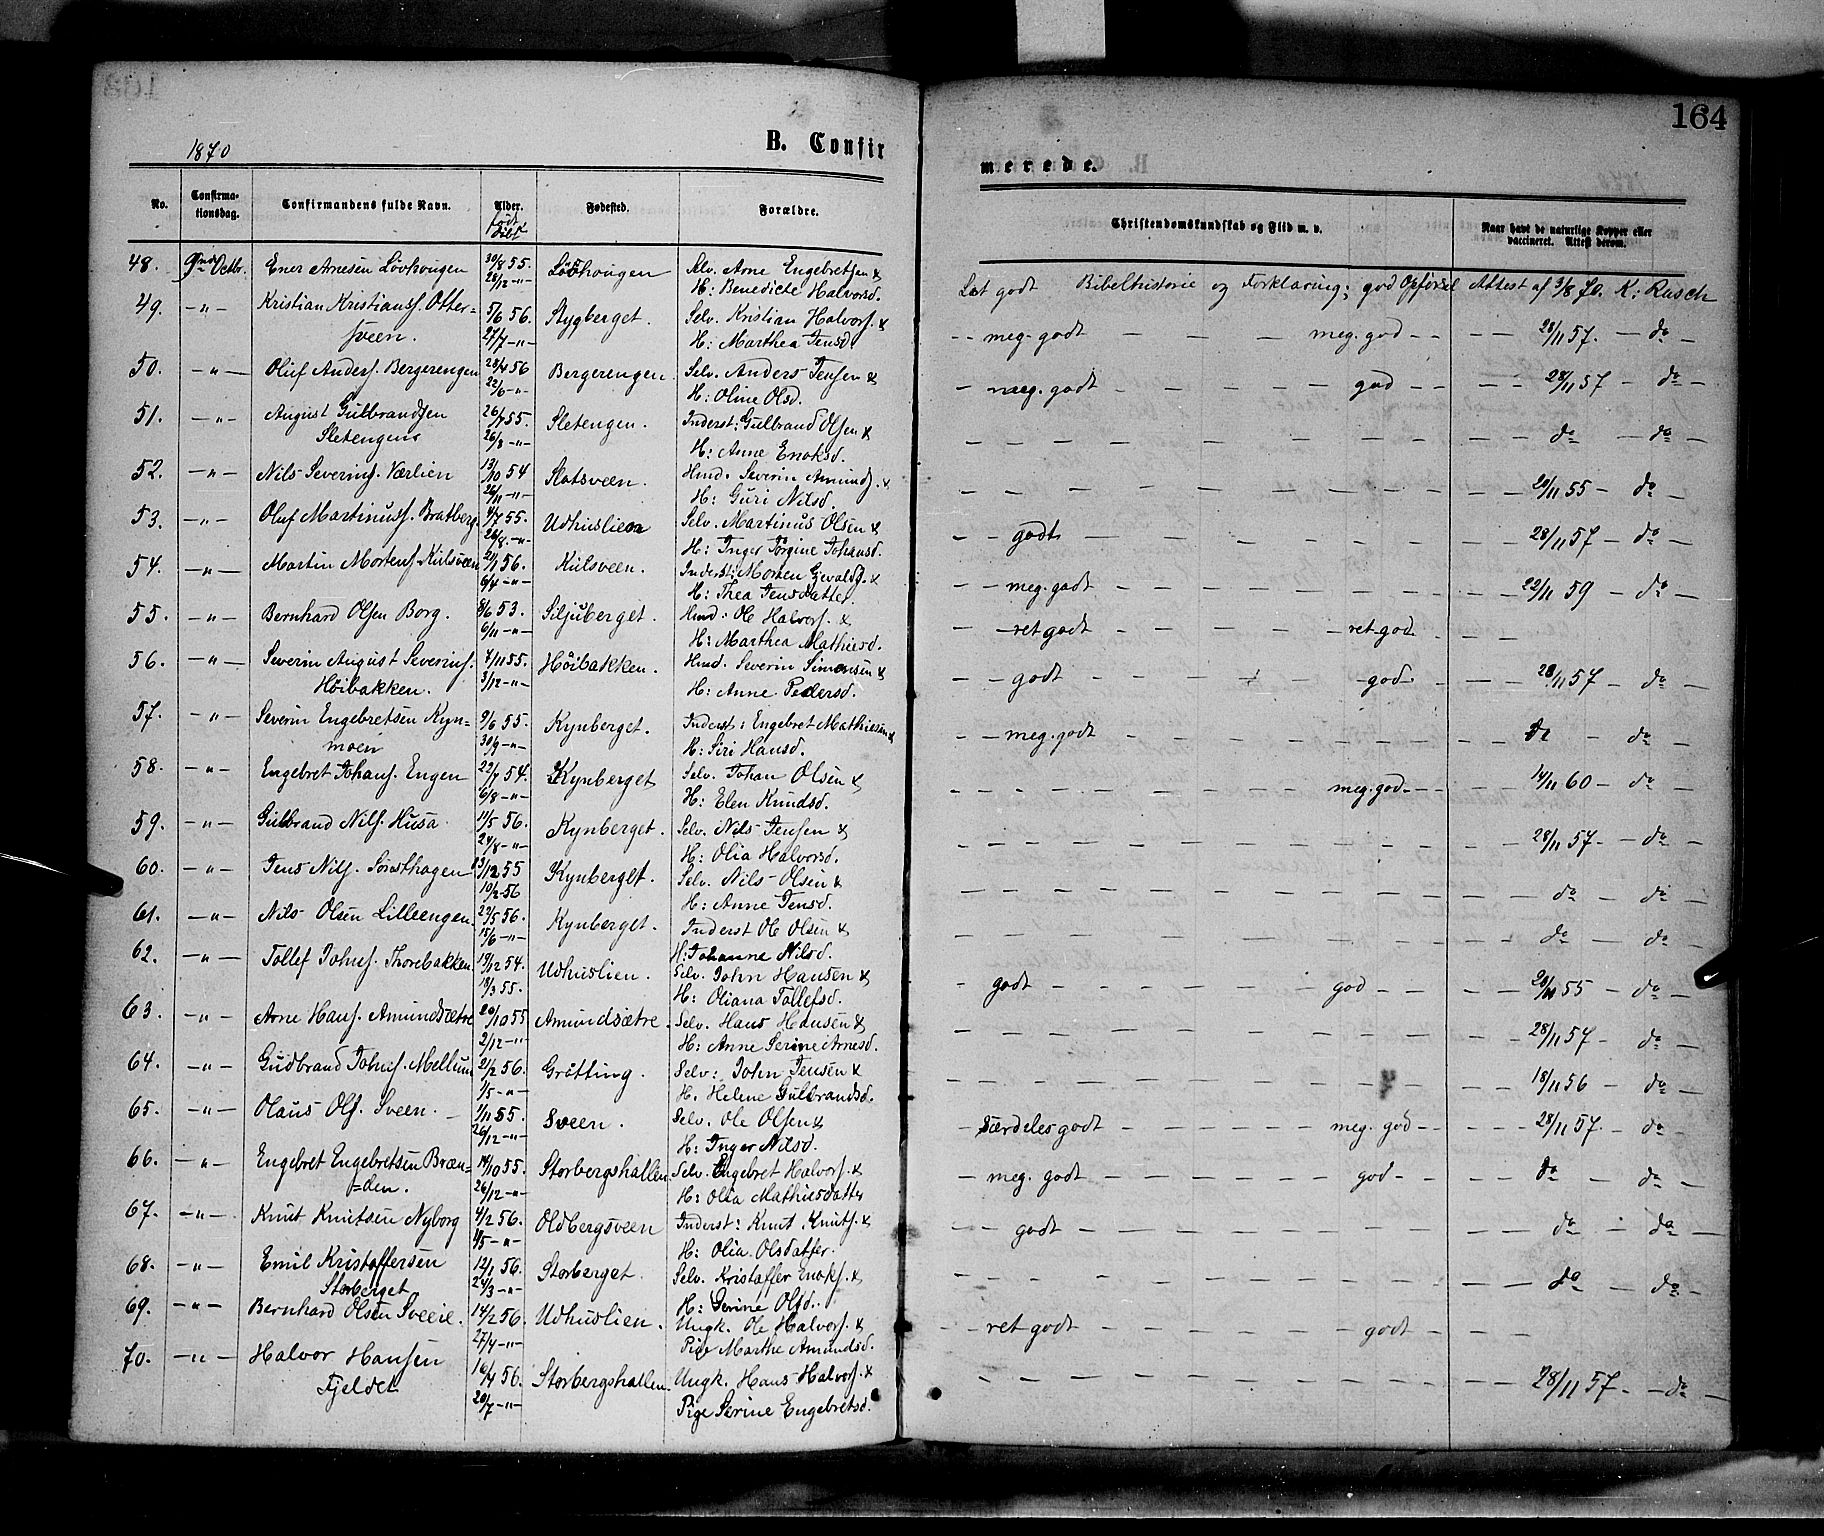 164
1870
B. Confir
merede.
No.
Confirma-
tionsdag.
Confirmandens fulde Navn.
Alder.
født
døbt
Fødested.
Forældre.
Christendomskundskab og Flid m. v.
Naar havt de naturlige Kopper eller
vaccineret. Attest derom.
48. 9nde Octbr. Ener Arnesen Lövhougen 30/8 55. Lövhougen Selv. Arne Engebretsen &
28/12 -"- H: Benedicte Halvorsd.
Læt godt Bibelhistorie og Forklaring; god Opførsel Attest af 3/8 70. K: Rasch
49. -"- Kristian Kristians. Otter- 5/6 56. Stygberget. Selv. Kristian Halvors. &
sveen. 27/7 -"- H: Marthea Jensd
-- meg. godt - - - meg. god - - - - 28/11 57. - do
50. -"- Oluf Anders. Bergerengen 28/4 56 Bergerengen. Selv. Anders Jensen &
22/6 -"- H: Oline Olsd.
- meg. godt god - - - - 28/11 57 - do -
51. -"- August Gulbrandsen 26/7 55. Sletengen. Inderst: Gulbrand Olsen &
Sletengens 26/8 -"- H: Anne Enoksd.
do - do -
52. -"- Nils Severins. Værlien 13/10 54 Slatsveen. Hmd. Severin Amunds. &
26/11 -"- H: Guri Nilsd.
29/11 55 - do -
53. -"- Oluf Martinuss. Bratberg. 4/7 55. Udhuslien Selv. Martinus Olsen &
26/8. -"- H: Inger Jörgine Johansd.
- - godt 28/11 57 - do -
54. -"- Martin Mortens. Kulsveen 21/1 56. Kulsveen. Inderst: Morten Gevalds. &
6/4 -"- H: Thea Jensdatter.
- - meg. godt 22/11 59 - do -
55. -"- Bernhard Olsen Borg. 8/6 53. Siljuberget. Hmd. Ole Halvors. &
6/11 -"- H: Marthea Mathiesd.
- - ret godt - - - ret god - - -
56. -"- Severin August Severins. 4/11 55. Höibakken. Hmd. Severin Simensen &
Höibakken. 3/12 -"- H: Anne Pedersd.
- - godt - - - god - - - 28/11 57 - do -
57. -"- Severin Engebretsen Kyn= 9/6 55. Kynberget. Inderst: Engebret Mathiesen &
moen 30/9 -"- H: Siri Hansd.
- - meg. godt do - do -
58. -"- Engebret Johans. Engen 22/7 54. Kynberget Selv. Johan Olsen &
6/8 -"- H: Elen Knudsd.
meg. god - - - 14/11 60 - do
59. -"- Gulbrand Nils. Husa 11/5 56. Kynberget. Selv. Nils Jensen &
24/8 -"- H: Olia Halvorsd.
28/11 57. - do -
60. -"- Jens Nils. Sörsthagen 13/12 55 Kynberget. Selv. Nils Olsen &
10/2 56 H: Anne Jensd.
do - do -
61. -"- Nils Olsen Lilleengen. 29/5 56. Kynberget. Inderst Ole Olsen &
15/6 -"- H: Johanne Nilsd.
do - do -
62. -"- Tollef Johns. Thorebakken 19/12 54. Udhuslien. Selv. John Hansen &
18/3 55. H: Oliana Tollefsd.
- godt - - - god - - - 28/11 55 - do -
63. -"- Arne Hans. Amundsætre 20/10 55 Amundsætre. Selv. Hans Hansen &
2/12 -"- H: Anne Serine Arnesd.
28/11 57. - do -
64. -"- Gudbrand Johns. Mellum 21/2 56. Grötting. Selv: John Jensen &
1/5 -"- H. Helene Gulbrandsd.
18/11 56 - do -
65. -"- Olaus Ols. Sveen. 1/11 55. Sveen. Selv. Ole Olsen &
26/12 -"- H: Inger Nilsd.
- Særdeles godt - - meg. god - - - 28/11 57. - do -
66. -"- Engebret Engebretsen Bræn= 14/10 55. Storbergshallen Selv. Engebret Halvors. &
=den. 26/12 -"- H: Olia Mathiesdatter
- meg. godt - - - god - - - do - do -
67. -"- Knut Knutsen Nyborg 4/2 56. Oldbergsveen Inderst: Knut Knuts. &
4/5 -"- H: Olia Olsdatter.
- - godt do - do -
68. -"- Emil Kristoffersen 12/1 56. Storberget. Selv. Kristoffer Enoks. &
Storberget 24/3 -"- H: Serine Olsd.
do - do -
69. -"- Bernhard Olsen Sveeie. 14/2 56. Udhuslien. Ungk. Ole Halvors. &
27/4 -"- Pige Marthe Amundsd.
- ret godt - - - godt - - -
70. -"- Halvor Hansen 16/4 56. Storbergshallen. Ungk. Hans Halvors. &
Fjeldet 20/7 -"- Pige Serine Engebretsd.
28/11 57. - do -